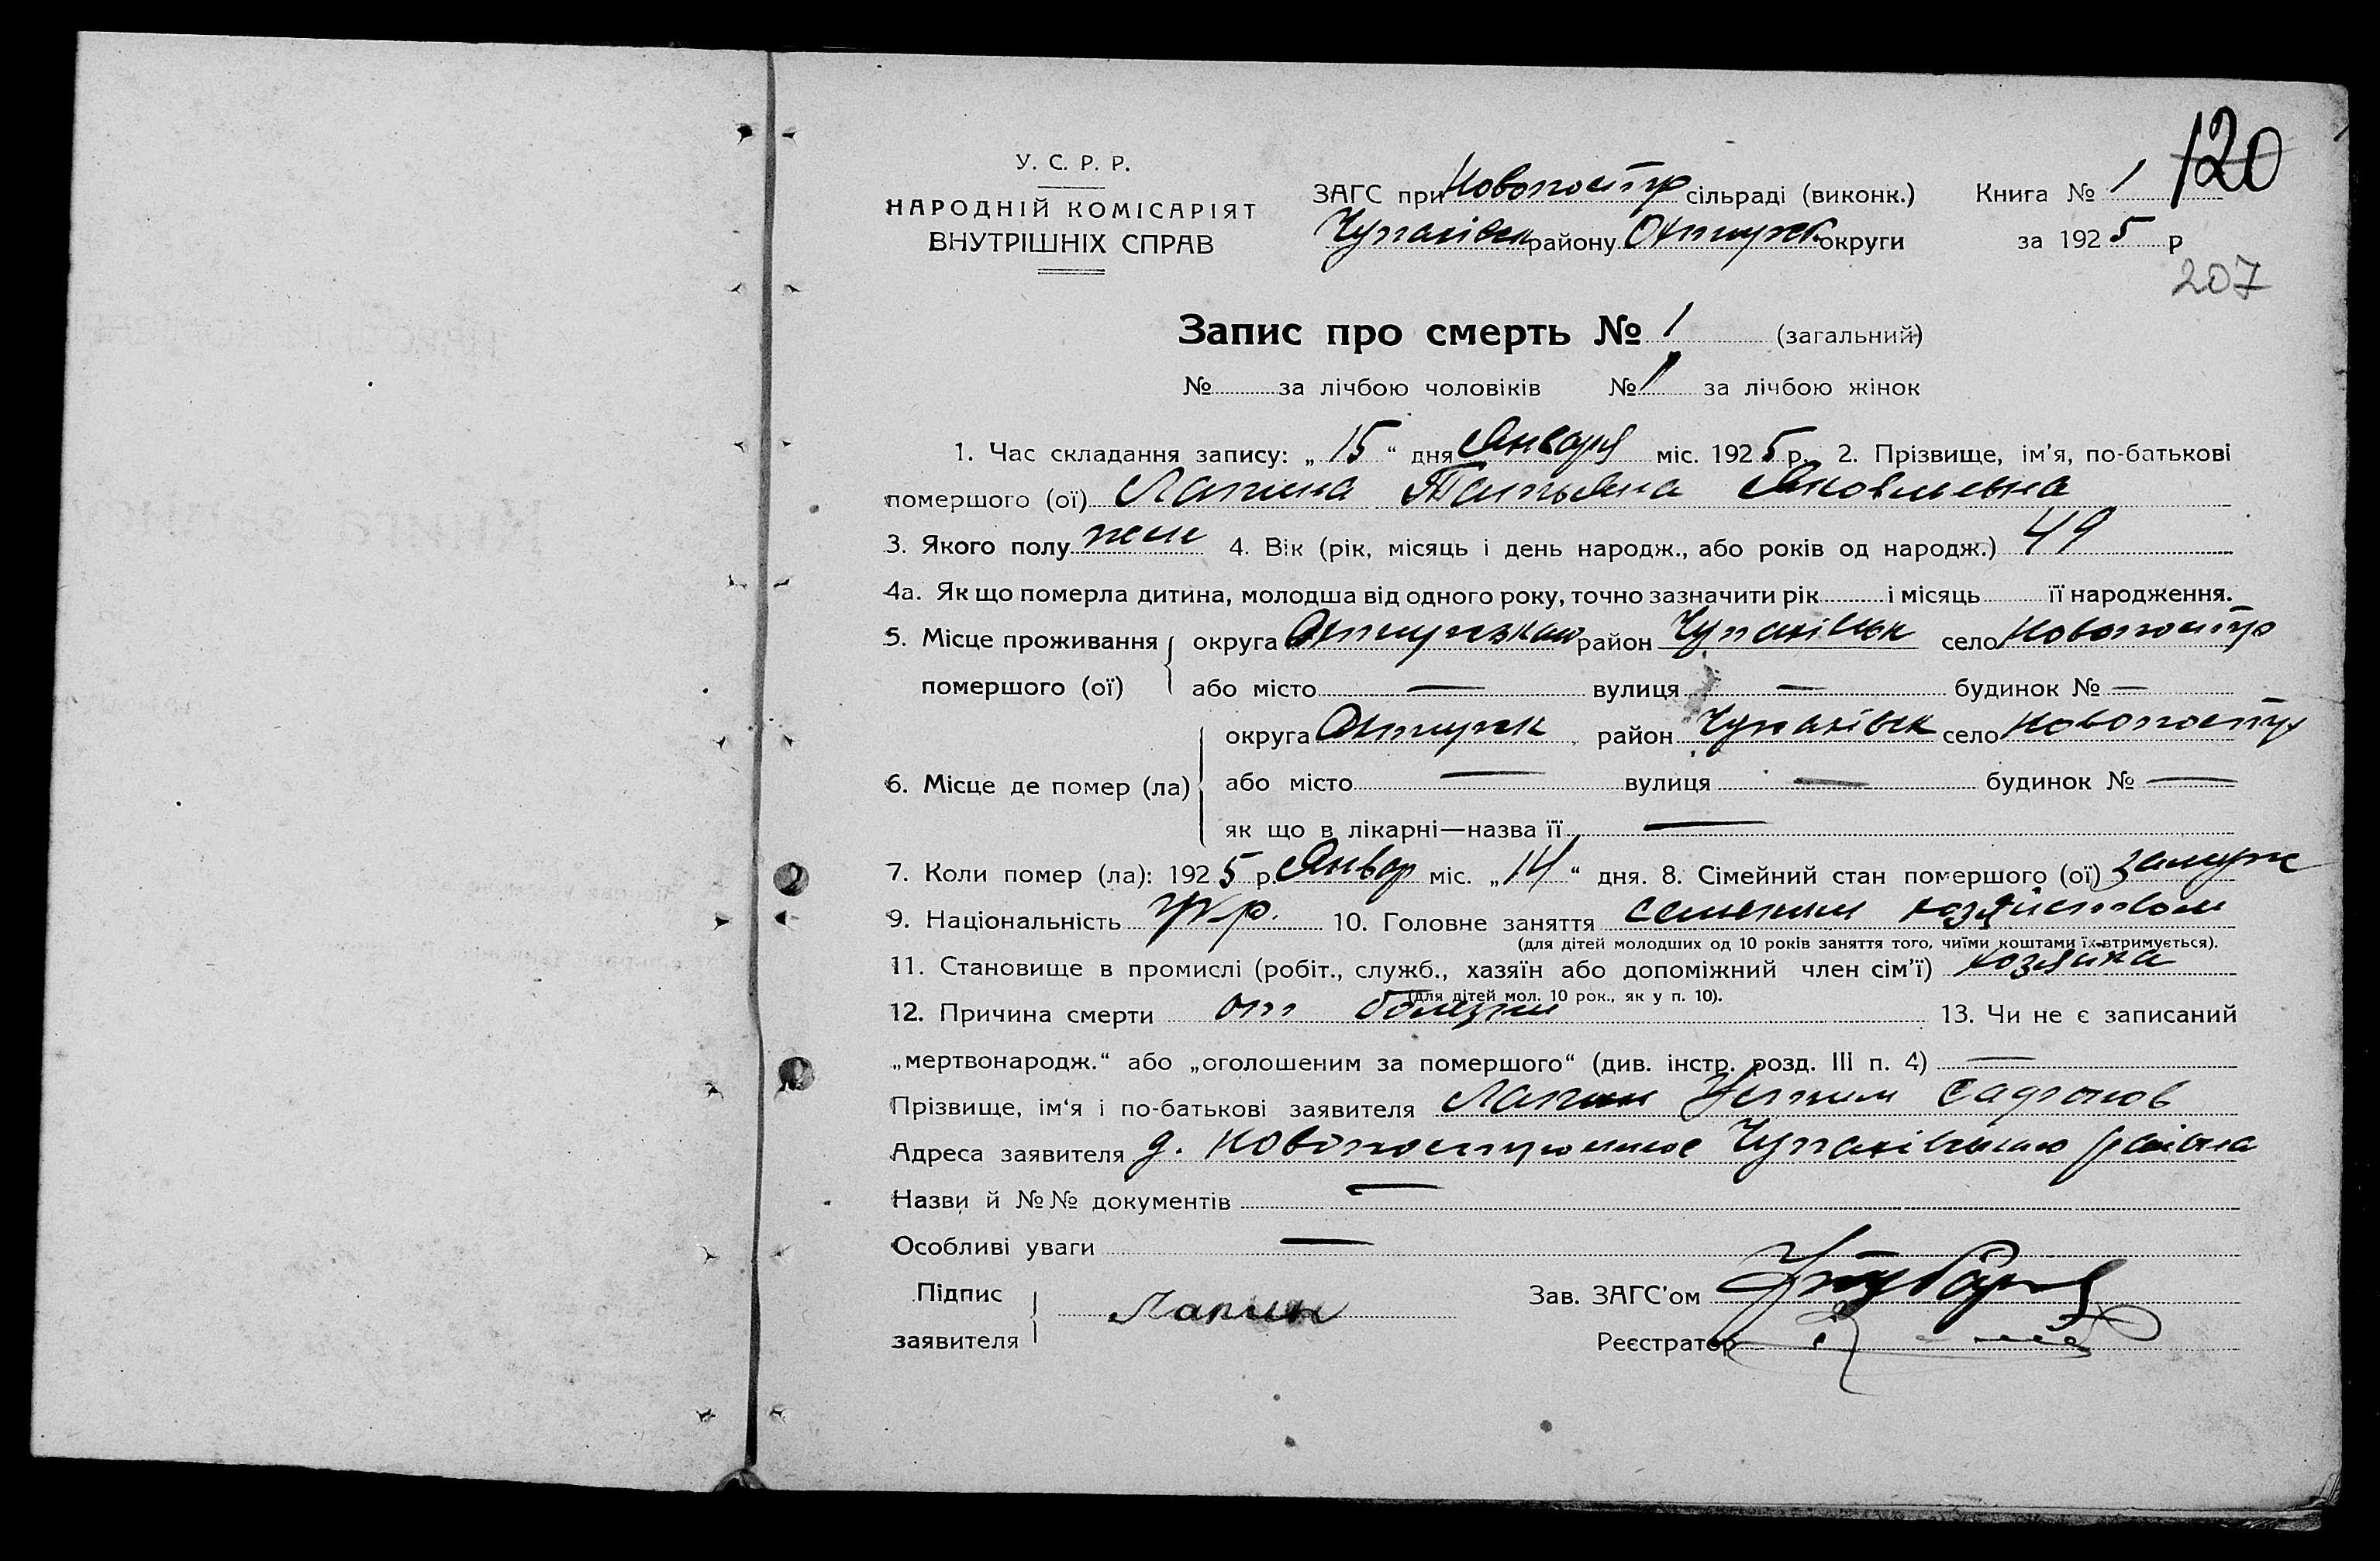 120
У. С. Р. Р.
НАРОДНІЙ КОМІСАРІЯТ
ВНУТРІШНІХ СПРАВ
ЗАГС при Новопостр сільраді (виконк.) Книга № 1
Чупахівськ району Охтирск округи за 1925 р
207
Запис про смерть № 1 (загальний)
№ за лічбою чоловіків № 1 за лічбою жінок
1. Час складання запису: „15“ дня Января міс. 1925 р. 2. Прізвище, ім’я, по-батькові
помершого (ої) Лапина Татьяна Яковлевна
3. Якого полу жен 4. Вік (рік, місяць і день народж., або років од народж.) 49
4а. Як що померла дитина, молодша від одного року, точно зазначити рік і місяць її народження.
5. Місце проживання округа район Чупахівськ село Новопостр
помершого (ої) або місто — вулиця — будинок № —
округа Охтирск район Чупахівск село Новопостр
6. Місце де помер (ла) або місто — вулиця — будинок № —
як що в лікарні—назва її —
7. Коли помер (ла): 1925 р. Январ міс. „14“ дня. 8. Сімейний стан помершого (ої) замуж
9. Національність 10. Головне заняття хозяйством
(для дітей молодших од 10 років заняття того, чиїми коштами їх втримується).
11. Становище в промислі (робіт., служб., хазяїн або допоміжний член сім’ї) хозяика
(для дітей мол. 10 рок., як у п. 10).
12. Причина смерти от болезни 13. Чи не є записаний
„мертвонародж.“ або „оголошеним за помершого“ (див. інстр. розд. III п. 4) —
Прізвище, ім‘я і по-батькові заявителя Лапин Сафонов
Адреса заявителя д. Чупахівського района
Назви й №№ документів —
Особливі уваги —
Підпис
заявителя Лапин
Зав. ЗАГС’ом
Реєстратор